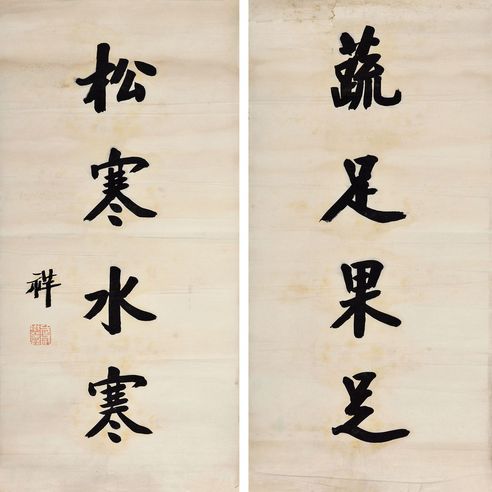 蔬足果足
松寒水寒
祥